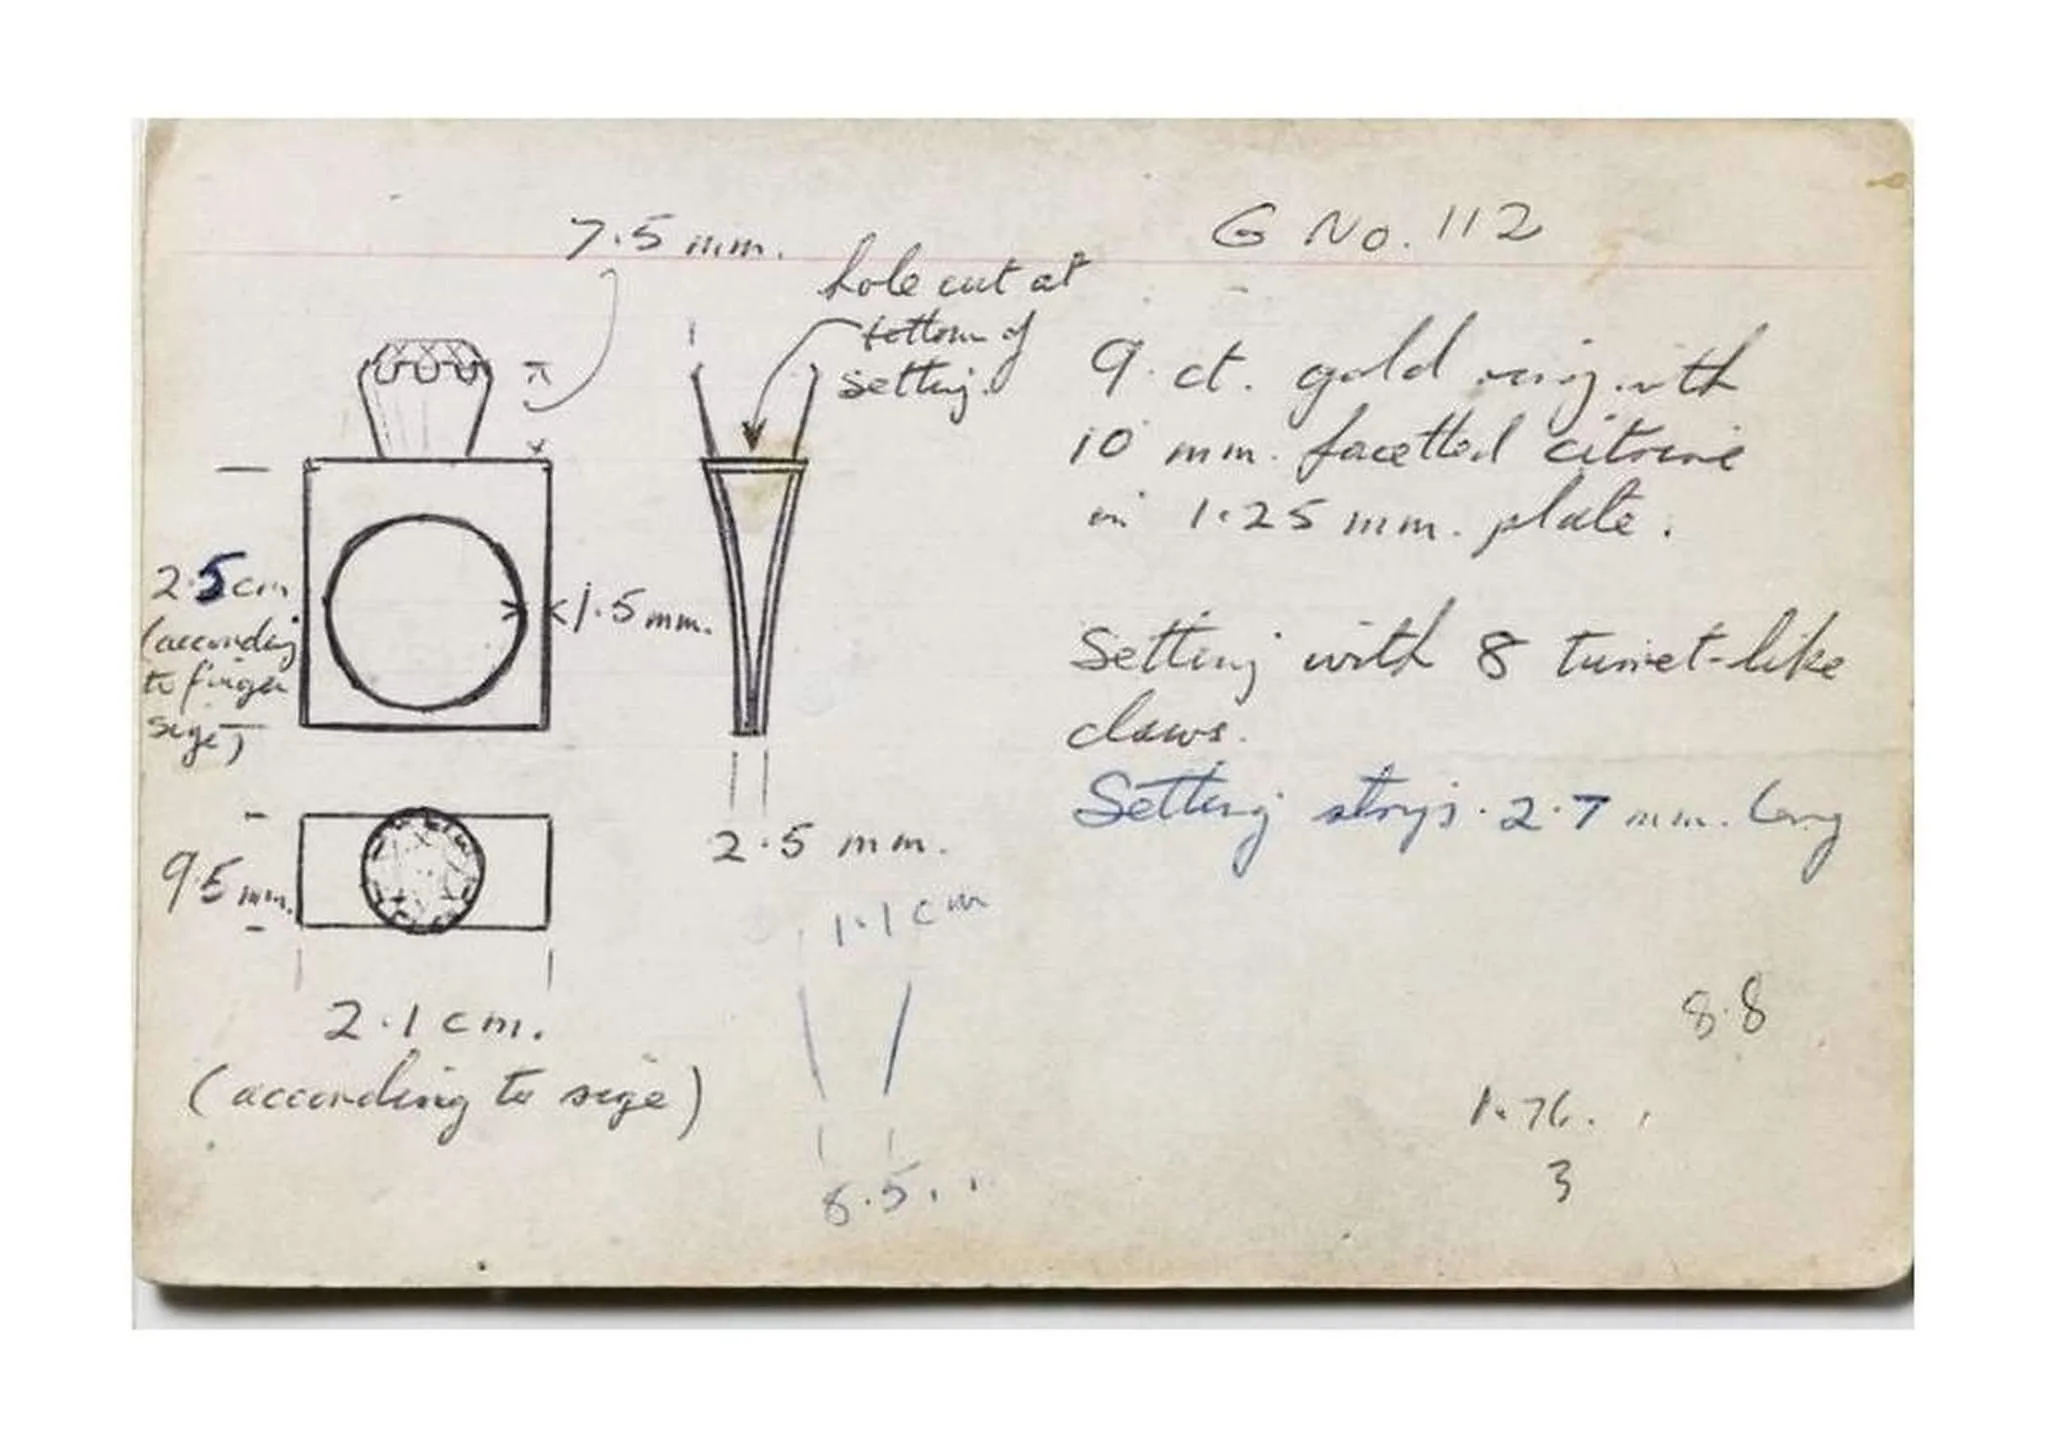 G No. 112
7.5 mm.
hole cut at
bottom of
setting.
9 ct. gold ring with
10 mm. facetted citrine
in 1.25 mm. plate.
2.5 cm
(according
to finger
size)
1.5 mm.
Setting with 8 turret-like
claws.
Setting strips. 2.7 mm. long
9.5 mm.
2.5 mm.
1.1 cm
2.1 cm.
(according to size)
8.8
1.76.
3